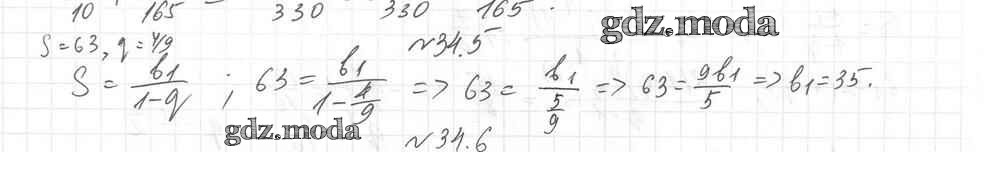 10 165 330 330 165 .
gdz.moda
S = 63, q = 4/9
№34.5
S = b1/(1-q) ; 63 = b1/(1-4/9) => 63 = b1/(5/9) => 63 = 9b1/5 => b1 = 35.
gdz.moda
№34.6